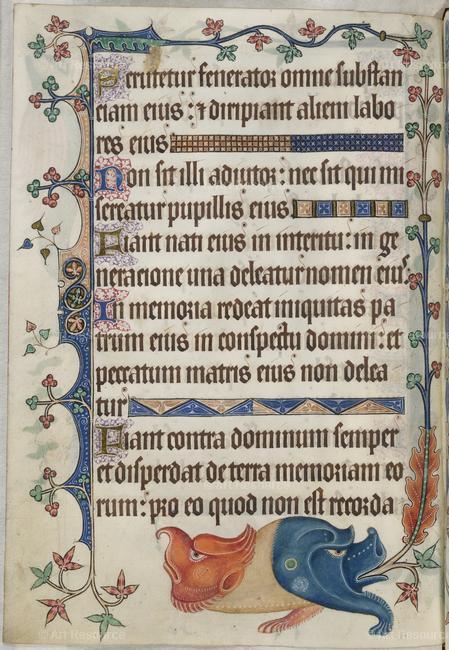 Scrutetur fenerator omnem substan
ciam eius : ⁊ diripiant alieni labo
res eius
Non sit illi adiutor : nec sit qui mi
sereatur pupillis eius.
Fiant nati eius in interitu : in ge
neracione una deleatur nomen eius.
In memoria redeat iniquitas pa
trum eius in conspectu domini : et
peccatum matris eius non delea
tur
Fiant contra dominum semper
et disperdat de terra memoriam eo
rum : pro eo quod non est recorda
© Art Resource
© Art Resource
© Art Resource
© Art Resource